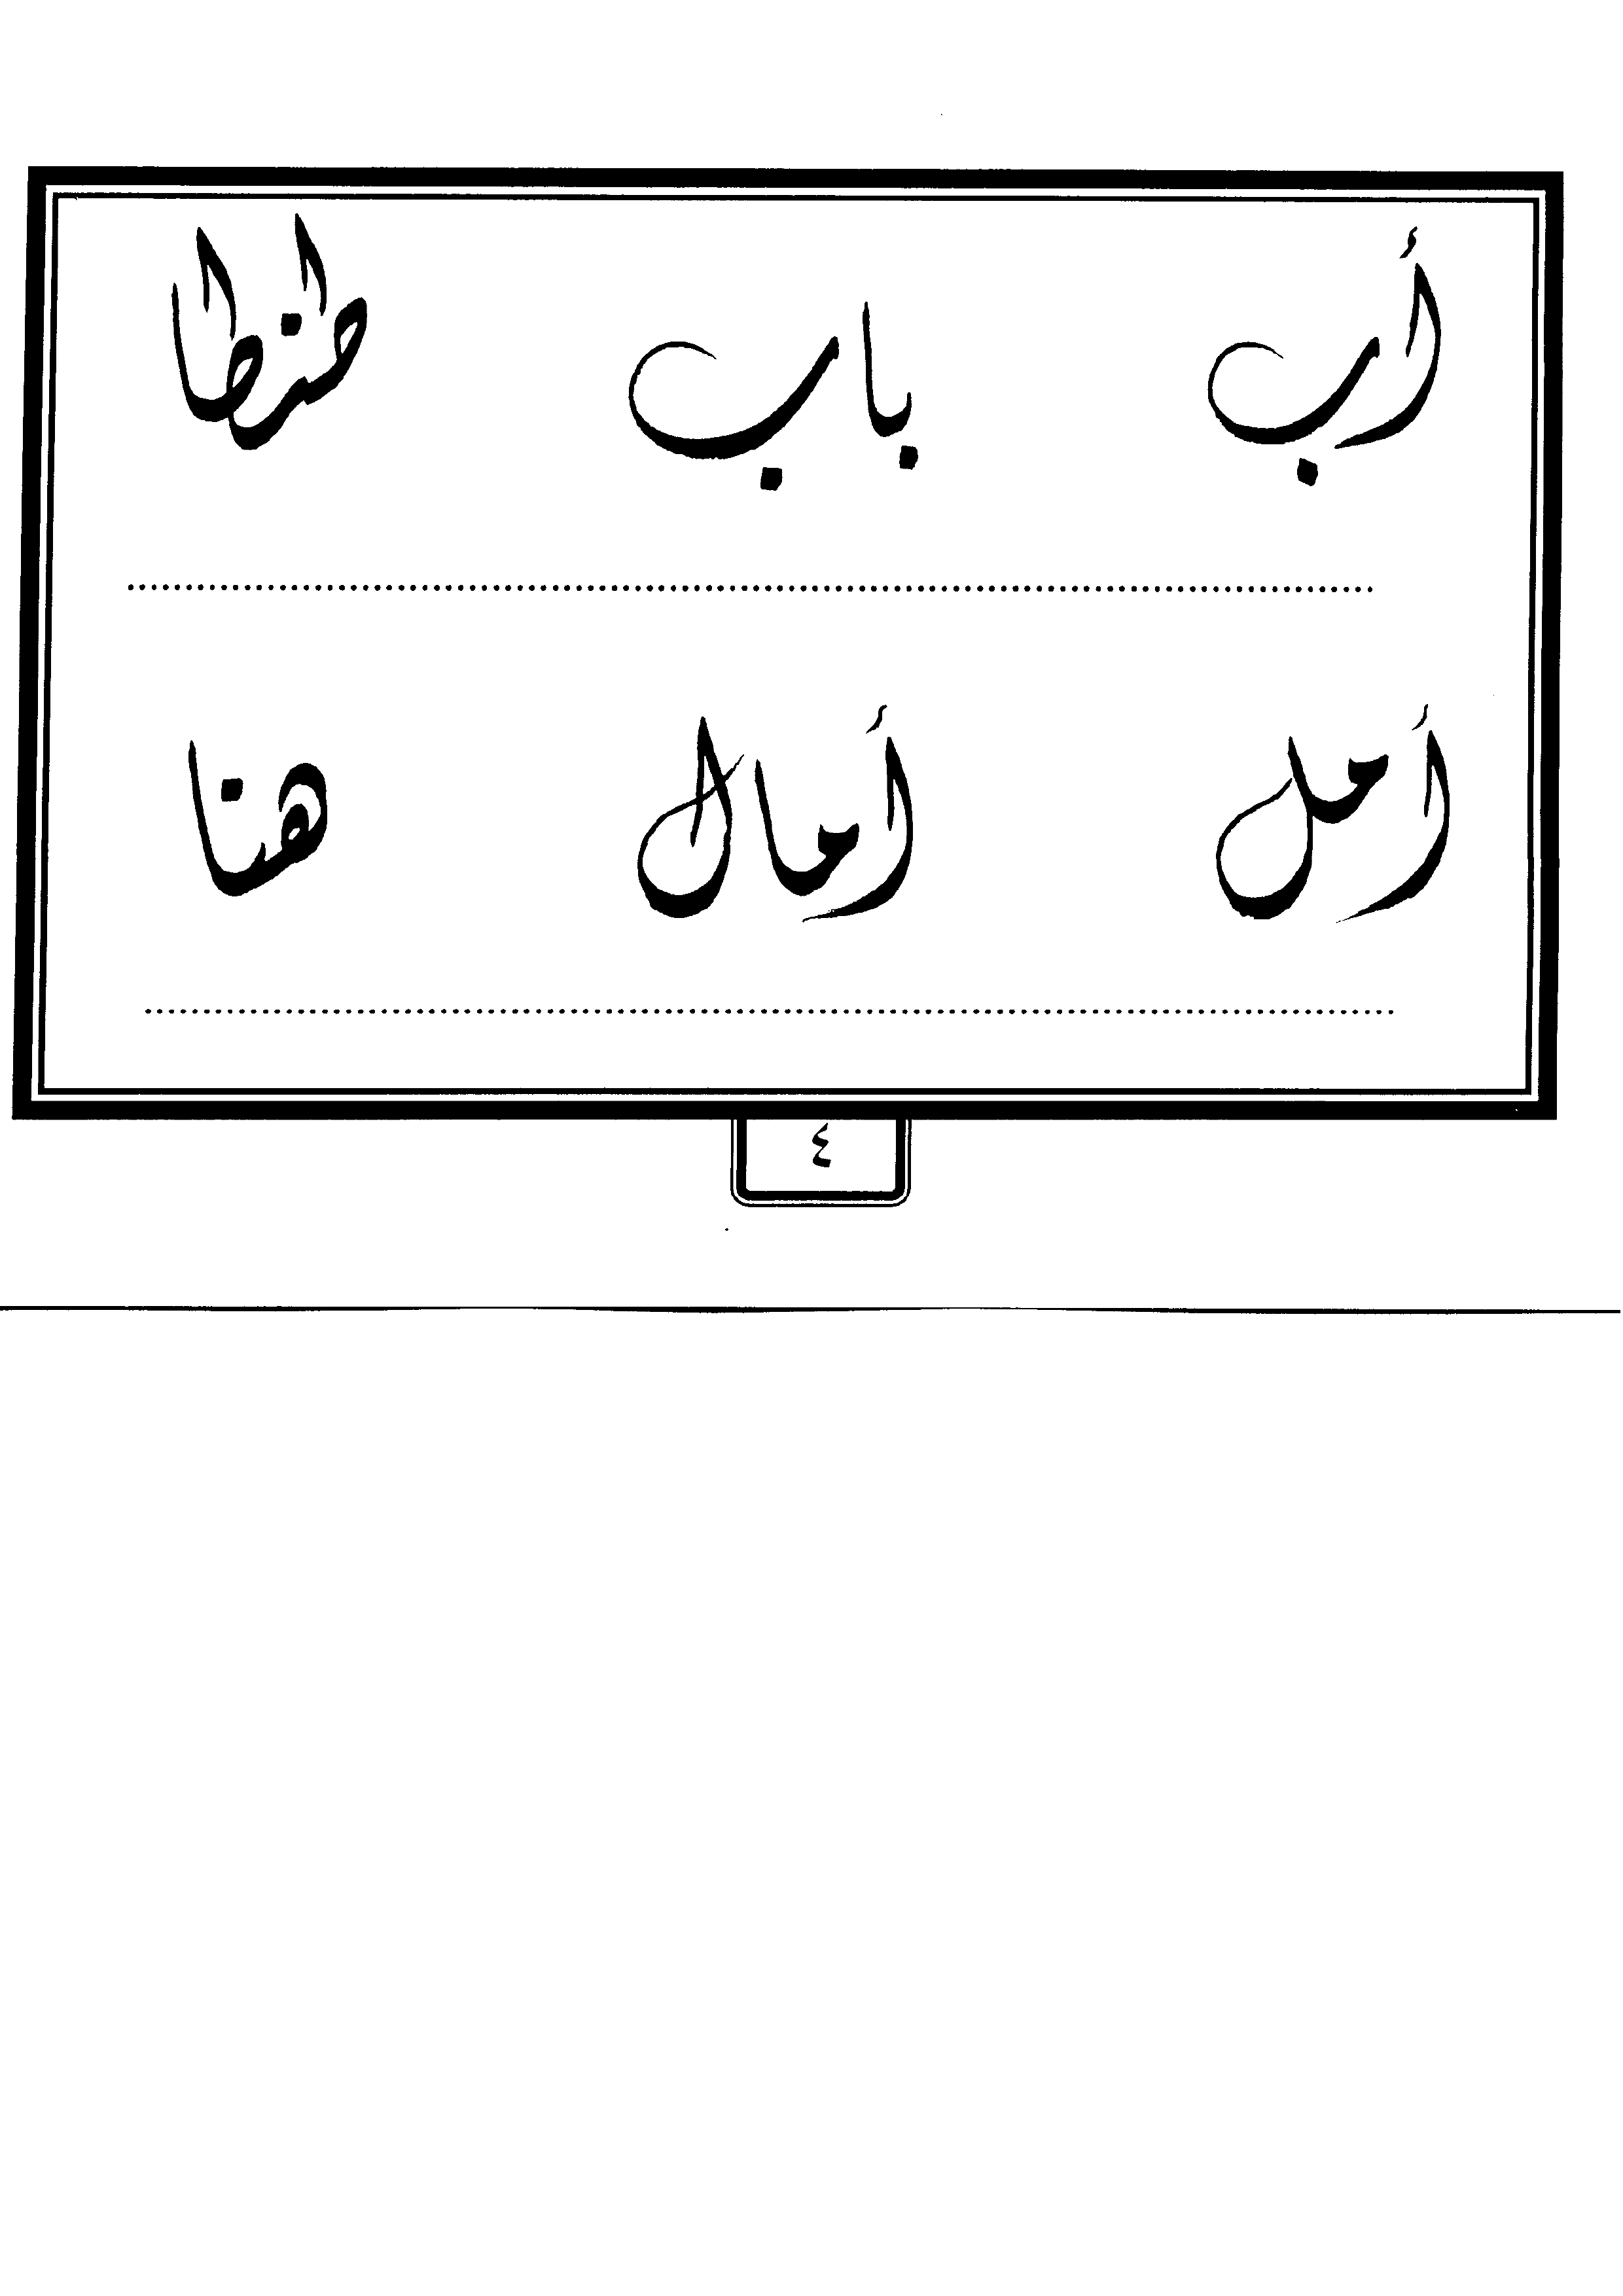 أب باب طنطا
أمل أمال هنا
٤